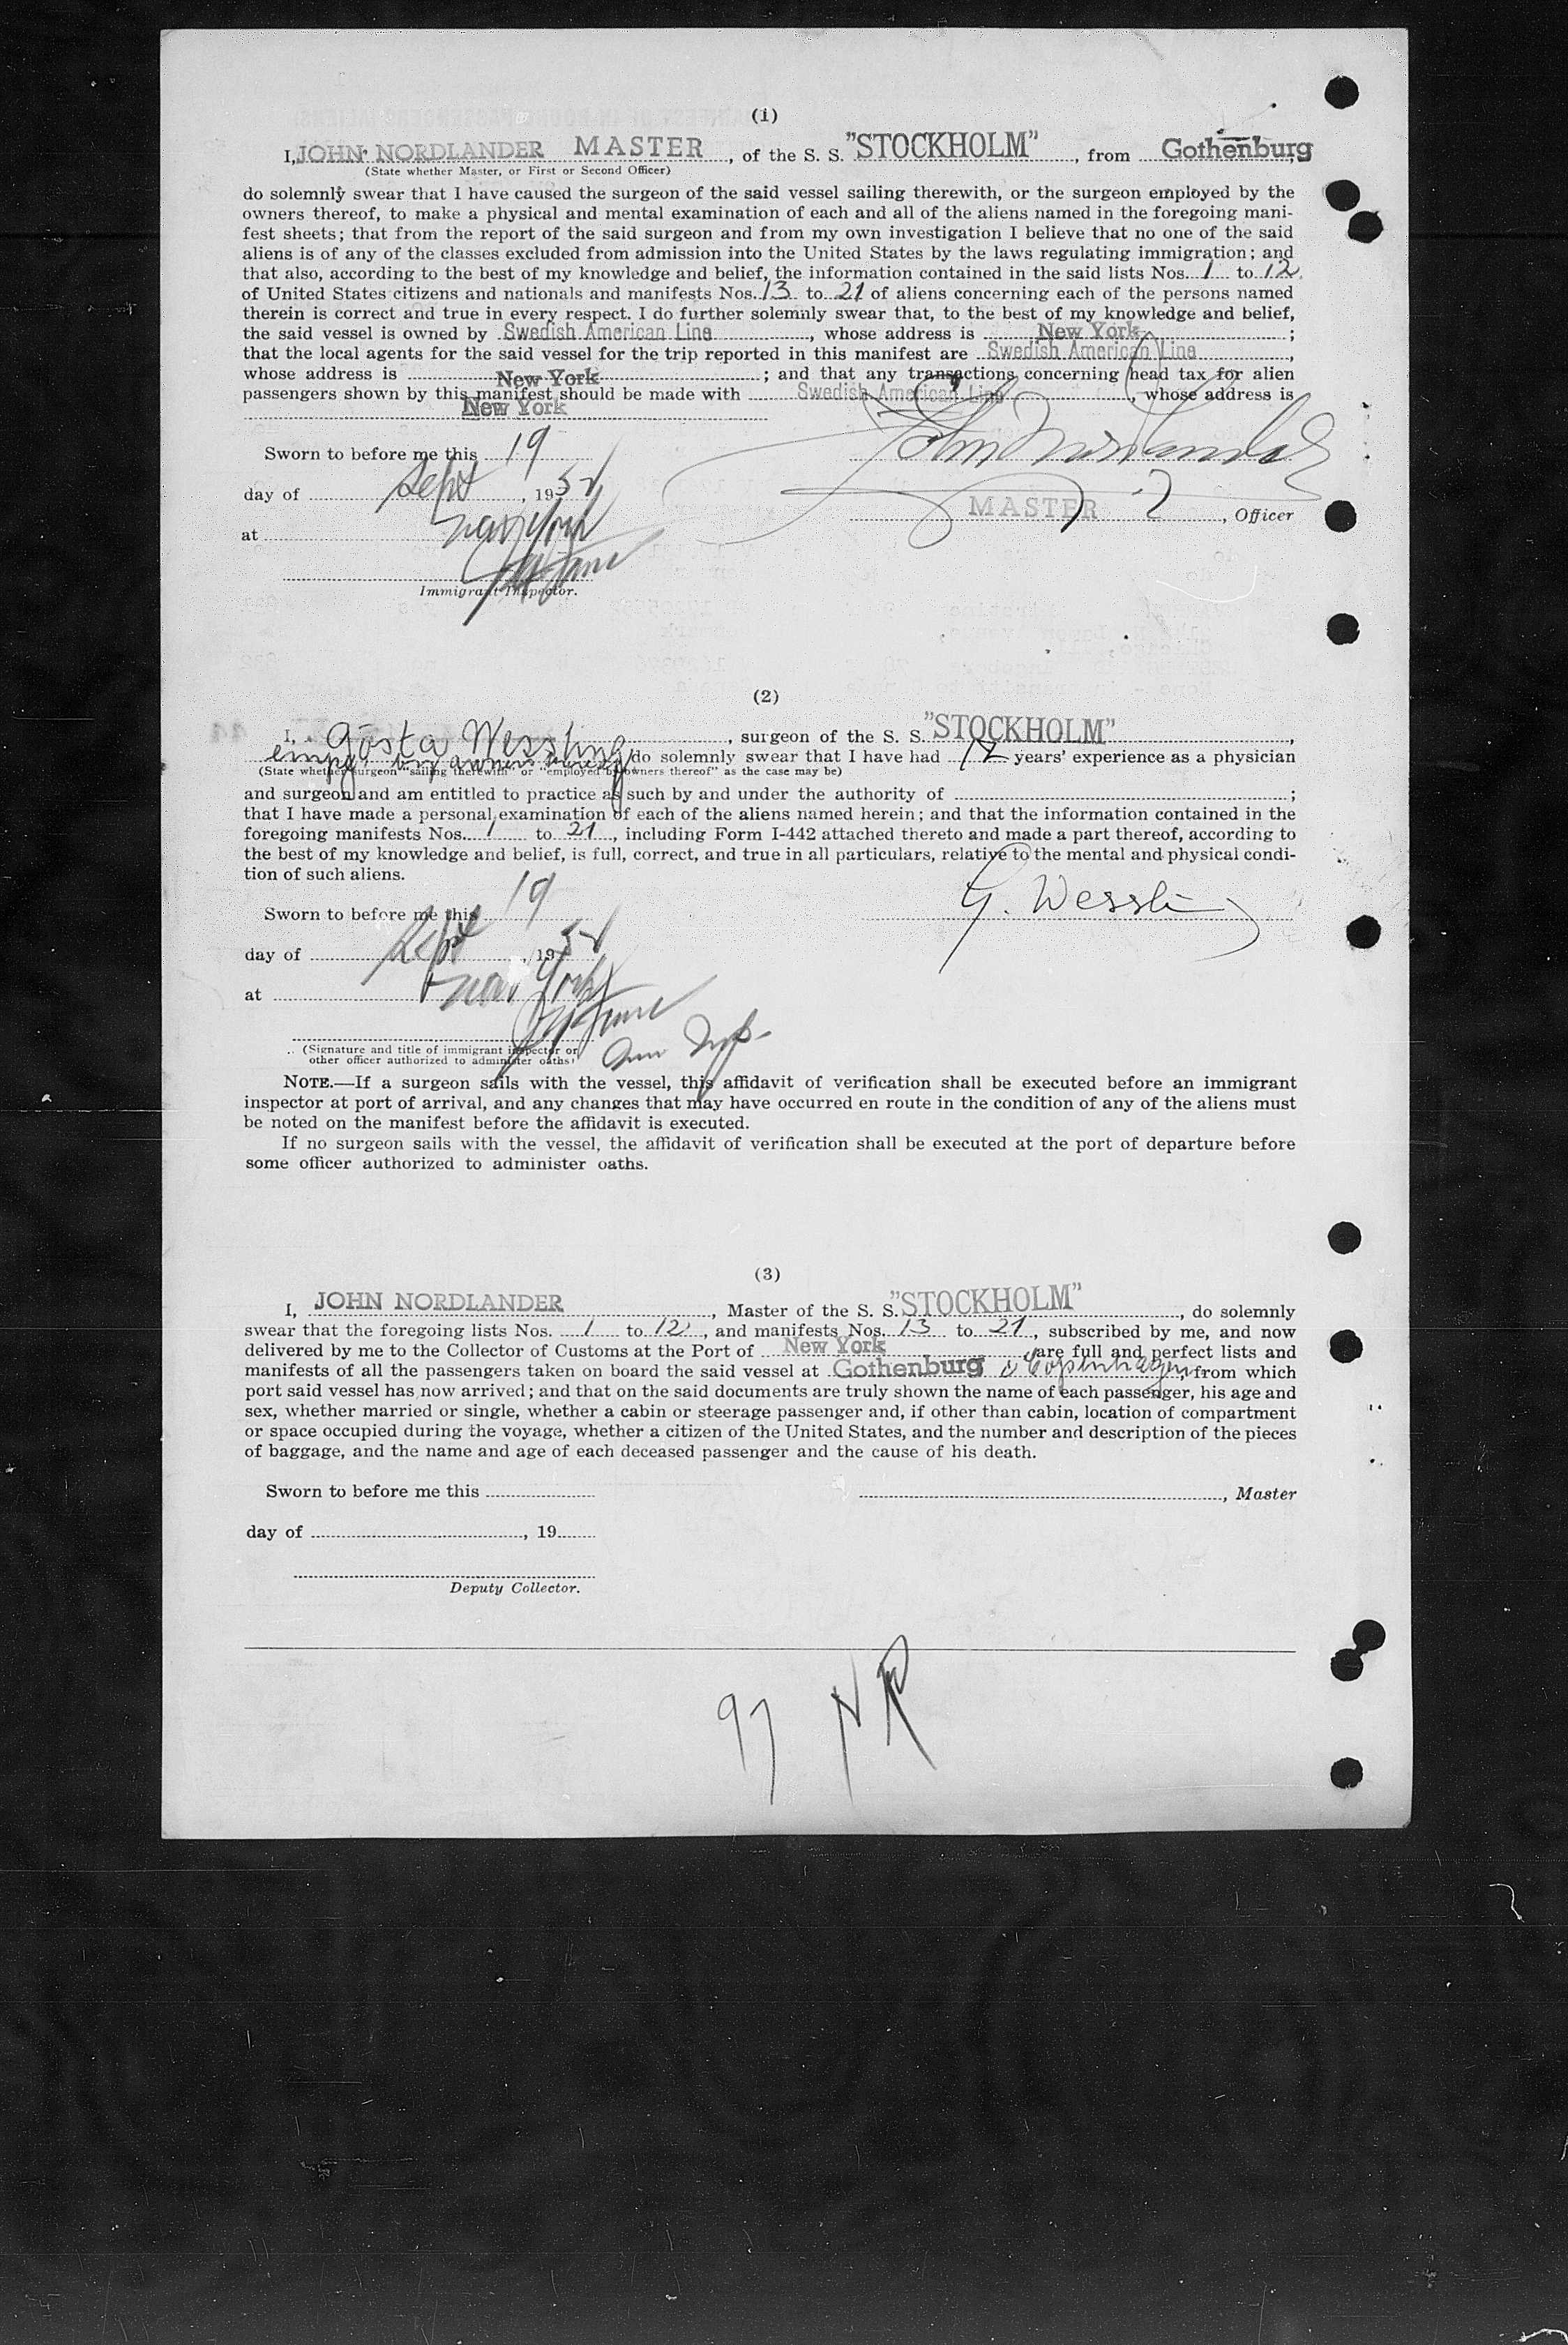 (1)
I, JOHN NORDLANDER MASTER, of the S. S. "STOCKHOLM", from Gothenburg
(State whether Master, or First or Second Officer)
do solemnly swear that I have caused the surgeon of the said vessel sailing therewith, or the surgeon employed by the
owners thereof, to make a physical and mental examination of each and all of the aliens named in the foregoing mani-
fest sheets; that from the report of the said surgeon and from my own investigation I believe that no one of the said
aliens is of any of the classes excluded from admission into the United States by the laws regulating immigration; and
that also, according to the best of my knowledge and belief, the information contained in the said lists Nos. 1 to 12
of United States citizens and nationals and manifests Nos. 13 to 21 of aliens concerning each of the persons named
therein is correct and true in every respect. I do further solemnly swear that, to the best of my knowledge and belief,
the said vessel is owned by Swedish American Line, whose address is New York;
that the local agents for the said vessel for the trip reported in this manifest are Swedish American Line,
whose address is New York; and that any transactions concerning head tax for alien
passengers shown by this manifest should be made with Swedish American Line, whose address is
New York
John Nordlander
Sworn to before me this 19
day of Sept, 1952
MASTER, Officer
at New York
Immigrant Inspector.
(2)
I, Gösta Wessling, surgeon of the S. S. "STOCKHOLM",
empl. by owners thereof do solemnly swear that I have had 12 years' experience as a physician
(State whether surgeon "sailing therewith" or "employed by owners thereof" as the case may be)
and surgeon and am entitled to practice as such by and under the authority of ;
that I have made a personal examination of each of the aliens named herein; and that the information contained in the
foregoing manifests Nos. 1 to 21, including Form I-442 attached thereto and made a part thereof, according to
the best of my knowledge and belief, is full, correct, and true in all particulars, relative to the mental and physical condi-
tion of such aliens.
G. Wessling
Sworn to before me this 19
day of Sept, 1952
at New York
Imm Insp.
(Signature and title of immigrant inspector or
other officer authorized to administer oaths)
NOTE.—If a surgeon sails with the vessel, this affidavit of verification shall be executed before an immigrant
inspector at port of arrival, and any changes that may have occurred en route in the condition of any of the aliens must
be noted on the manifest before the affidavit is executed.
If no surgeon sails with the vessel, the affidavit of verification shall be executed at the port of departure before
some officer authorized to administer oaths.
(3)
I, JOHN NORDLANDER, Master of the S. S. "STOCKHOLM", do solemnly
swear that the foregoing lists Nos. 1 to 12, and manifests Nos. 13 to 21, subscribed by me, and now
delivered by me to the Collector of Customs at the Port of New York are full and perfect lists and
manifests of all the passengers taken on board the said vessel at Gothenburg Copenhagen, from which
port said vessel has now arrived; and that on the said documents are truly shown the name of each passenger, his age and
sex, whether married or single, whether a cabin or steerage passenger and, if other than cabin, location of compartment
or space occupied during the voyage, whether a citizen of the United States, and the number and description of the pieces
of baggage, and the name and age of each deceased passenger and the cause of his death.
Sworn to before me this
, Master
day of , 19
Deputy Collector.
97 NR